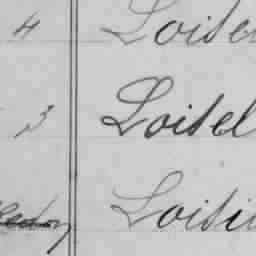 4 Loisel
3 Loisel
Loisi